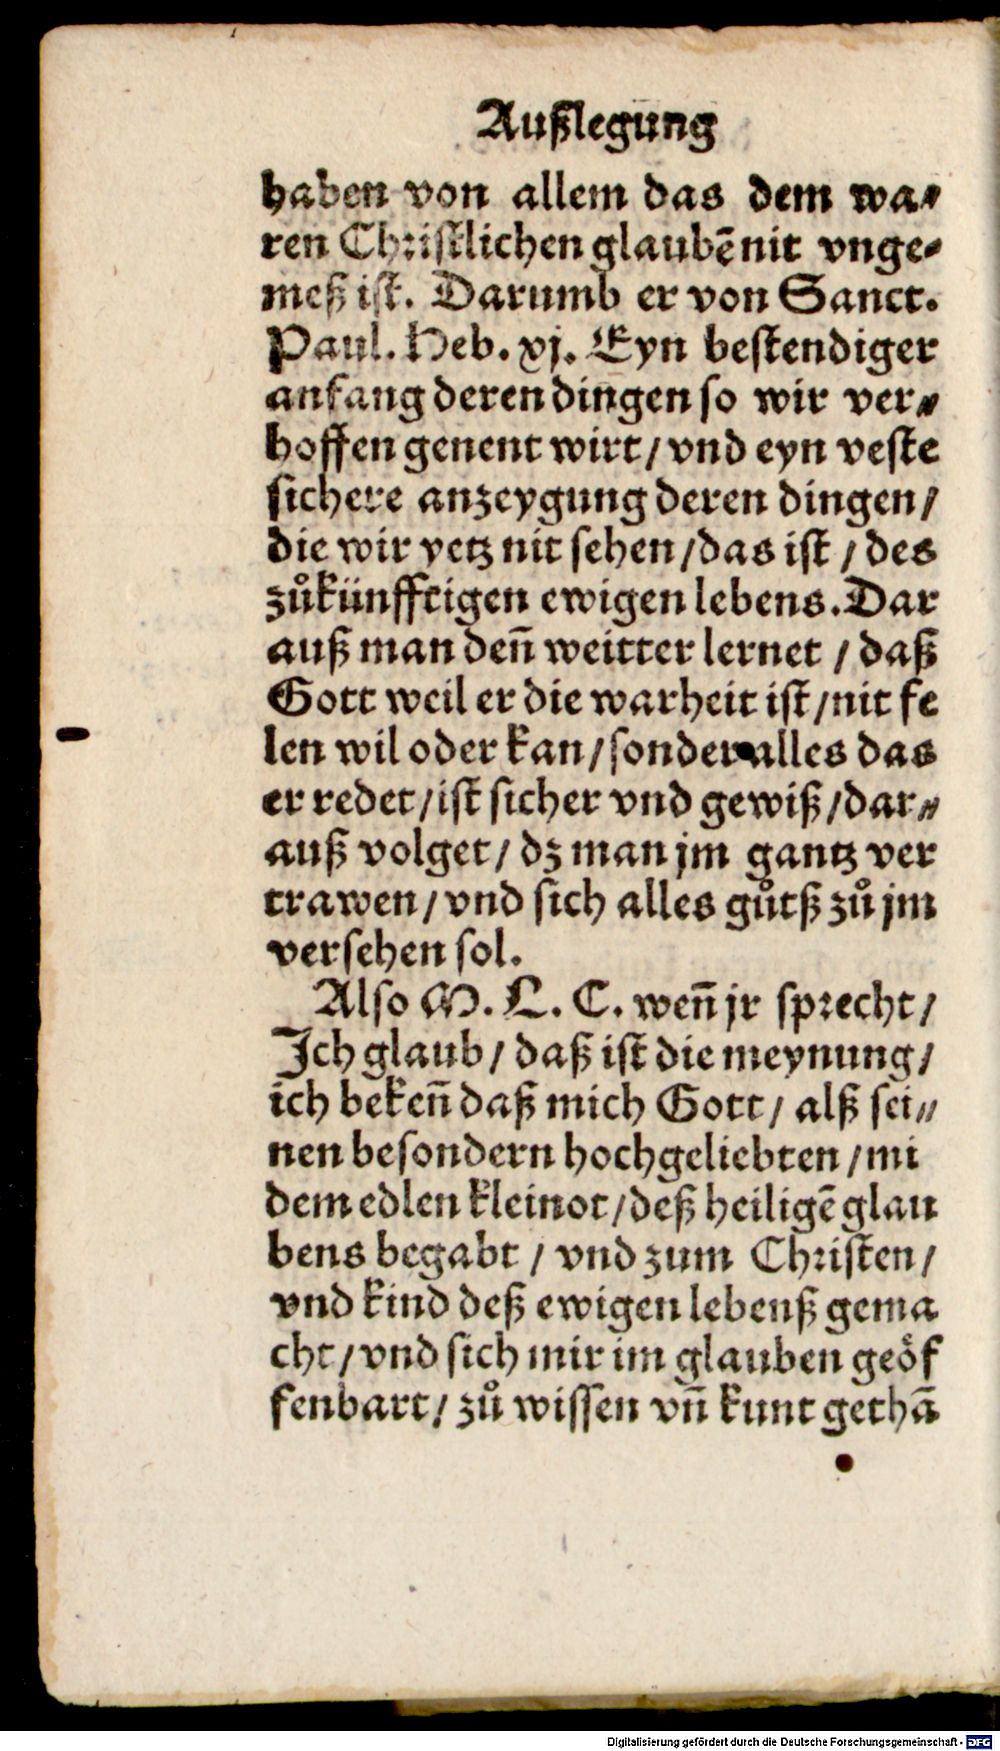 Außlegung
haben von allem das dem wa⸗
ren Christlichen glaubẽ nit vnge⸗
meß ist. Darumb er von Sanct.
Paul. Heb. xj. Eyn bestendiger
anfang deren dingen so wir ver⸗
hoffen genent wirt / vnd eyn veste
sichere anzeygung deren dingen /
die wir yetz nit sehen / das ist / des
zůkünfftigen ewigen lebens. Dar
auß man deñ weitter lernet / daß
Gott weil er die warheit ist / nit fe
len wil oder kan / sonder alles das
er redet / ist sicher vnd gewiß / dar⸗
auß volget / dz man jm gantz ver
trawen / vnd sich alles gůtß zů jm
versehen sol.
Also M. L. C. weñ jr sprecht /
Ich glaub / daß ist die meynung /
ich bekeñ daß mich Gott / alß sei⸗
nen besondern hochgeliebten / mi
dem edlen kleinot / deß heiligẽ glau
bens begabt / vnd zum Christen /
vnd kind deß ewigen lebenß gema
cht / vnd sich mir im glauben geöf
fenbart / zů wissen vñ kunt gethã
Digitalisierung gefördert durch die Deutsche Forschungsgemeinschaft - DFG